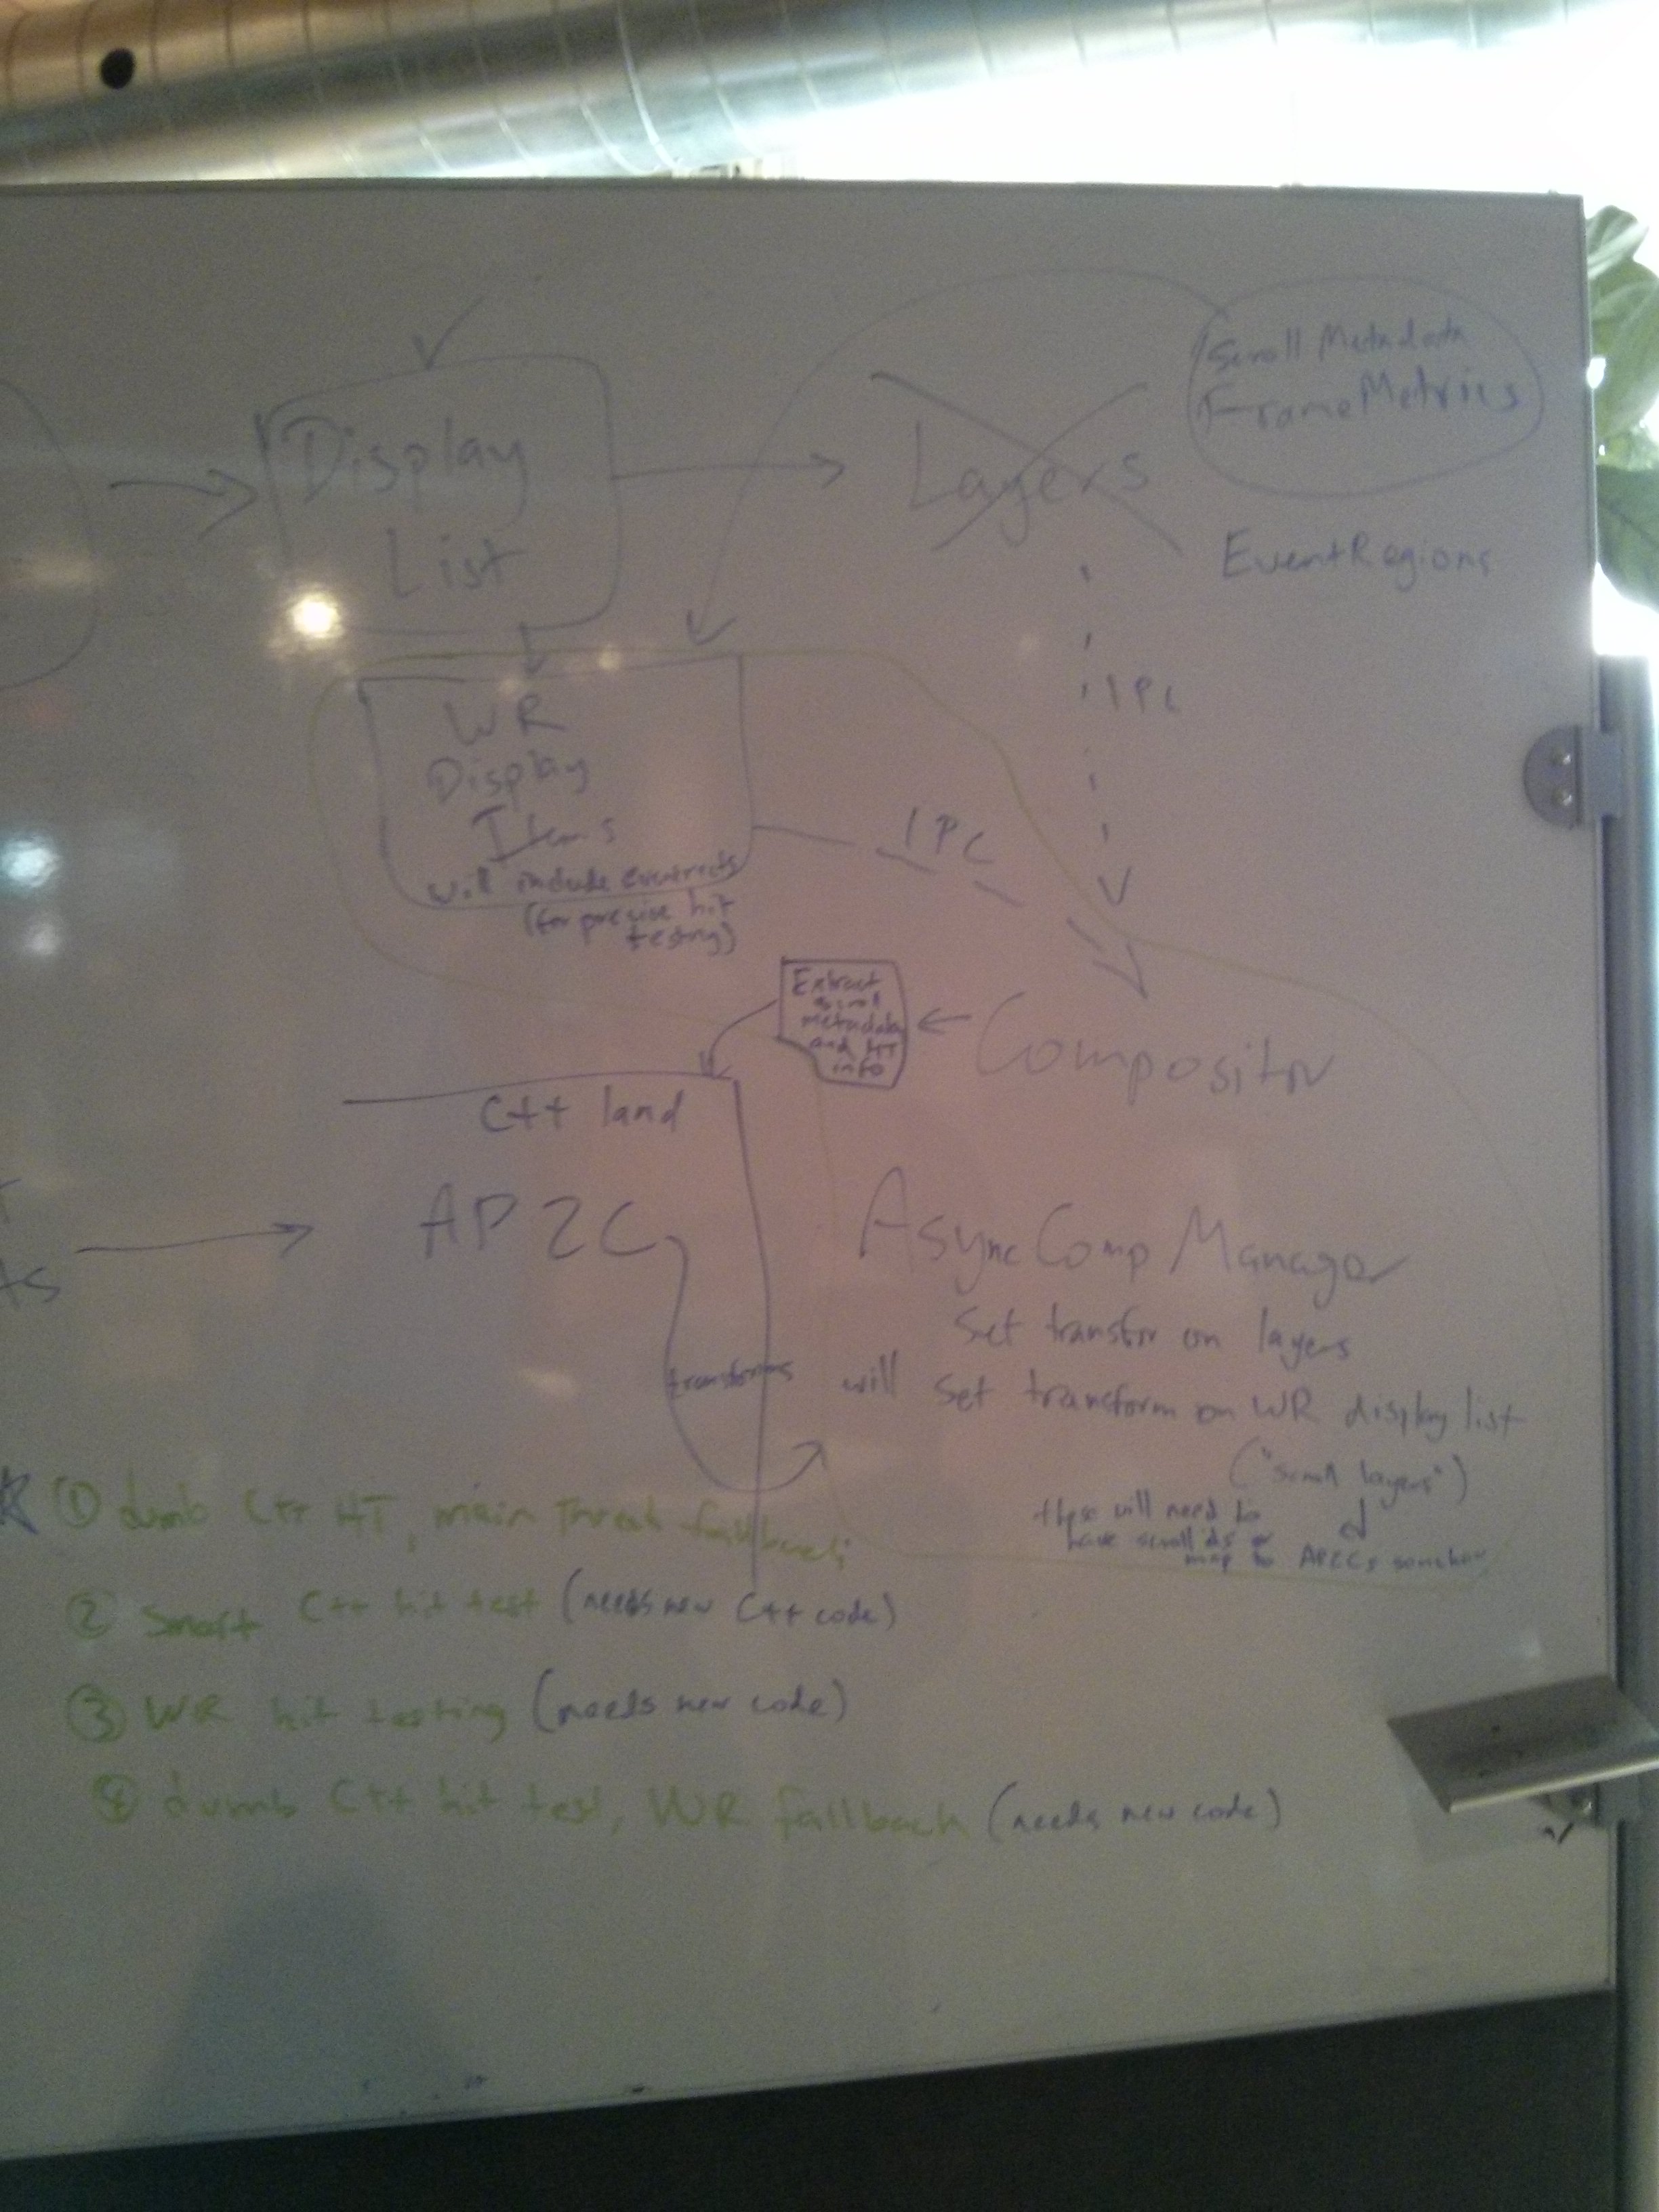 Scroll Metadata
FrameMetrics
Display
List
Layers
EventRegions
IPC
WR
Display
Items
will include eventrects
(for precise hit
testing)
IPC
Extract
scroll
metadata
and HT
info
Compositor
C++ land
APZC
AsyncCompManager
Set transfor on layers
transforms
will set transform on WR display list
("scroll layers")
these will need to
have scroll ids or
map to APZCs somehow
① dumb C++ HT, main thread fallback;
② Smart C++ hit test (needs new C++ code)
③ WR hit testing (needs new code)
④ dumb C++ hit test, WR fallback (needs new code)